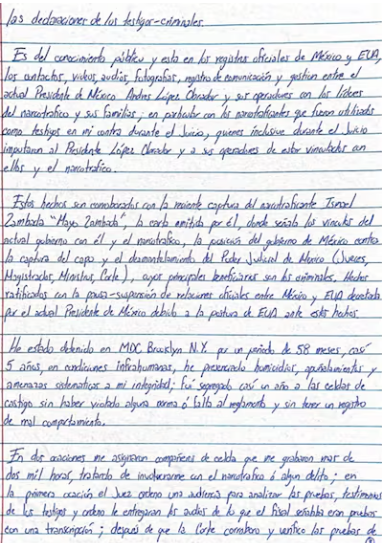 las declaraciones de los testigos-criminales.
Es del conocimiento público y esta en los registros oficiales de México y EUA,
los contactos, videos, audios, fotografias, registro de comunicación y gestion entre el
actual Presidente de México Andres López Obrador y sus operadores con los líderes
del narcotrafico y sus familias; en particular con los narcotraficantes que fueron utilizados
como testigos en mi contra durante el Juicio, quienes inclusive durante el Juicio
imputaron al Presidente López Obrador y a sus operadores de estar vinculados con
ellos y el narcotrafico.
Estos hechos son corroborados con la reciente captura del narcotraficante Ismael
Zambada "Mayo Zambada", la carta emitida por él, donde señala los vinculos del
actual gobierno con él y el narcotrafico, la posición del gobierno de México contra
la captura del capo y el desmantelamiento del Poder Judicial de México (Jueces,
Magistrados, Ministros, Corte), cuyos principales beneficiarios son los criminales. Hechos
ratificados con la pausa-suspensión de relaciones oficiales entre México y EUA decretada
por el actual Presidente de México debido a la postura de EUA ante estos hechos.
He estado detenido en MDC Brooklyn N.Y. por un periodo de 58 meses, casi
5 años, en condiciones infrahumanas, he presenciado homicidios, apuñalamientos y
amenazas sistematicas a mi integridad; fui segregado casi un año a las celdas de
castigo sin haber violado alguna norma ó falta al reglamento y sin tener un registro
de mal comportamiento.
En dos ocasiones me asignaron compañeros de celda que me grabaron mas de
dos mil horas, tratando de involucrarme con el narcotrafico ó algun delito; en
la primera ocasión el Juez ordeno una audiencia para analizar las pruebas, testimonios
de los testigos y ordeno le entregaran los audios de lo que el fiscal señalaba eran pruebas
con una transcripción; después de que la Corte corroboro y verifico las pruebas de